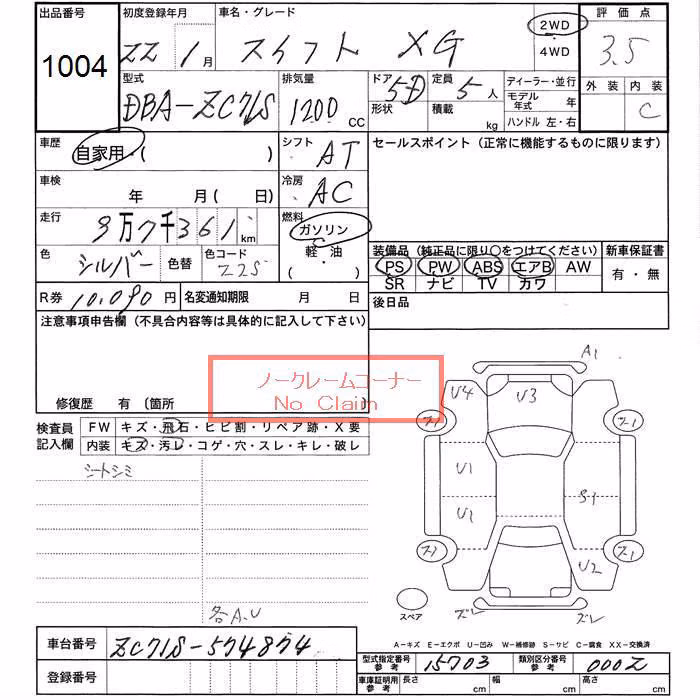 出品番号 初度登録年月 車名・グレード 2WD 評価点
1004 22 1月 スイフト XG 4WD 3.5
型式 排気量 ドア 5D 定員 5人 ディーラー・並行 外装 内装
DBA-ZC71S 1200cc 形状 積載 kg モデル年式 年 C
ハンドル 左・右
車歴 自家用・( ) シフト AT セールスポイント（正常に機能するものに限ります）
車検 年 月(日) 冷房 AC
走行 9万7千361km 燃料 ガソリン
色 シルバー 色替 色コード Z2S 軽・油 装備品（純正品に限り○をつけてください） 新車保証書
( ・ ) PS PW ABS エアB AW 有・無
SR ナビ TV カワ
R券 10,090円 名変通知期限 月 日 後日品
注意事項申告欄（不具合内容等は具体的に記入して下さい）
ノークレームコーナー
No Claim
修復歴 有〔箇所 〕
検査員記入欄 FW キズ・飛石・ヒビ割・リペア跡・X要
内装 キズ・汚レ・コゲ・穴・スレ・キレ・破レ
シートシミ
各A.U
A1
U4 U3
U1
U1 S1
U2
ズレ ズレ
スペア
A-キズ E-エクボ U-凹み W-補修跡 S-サビ C-腐食 XX-交換済
車台番号 ZC71S-574874
登録番号
型式指定番号 参考 15703 類別区分番号 参考 0002
車庫証明用 参考 長さ cm 幅 cm 高さ cm